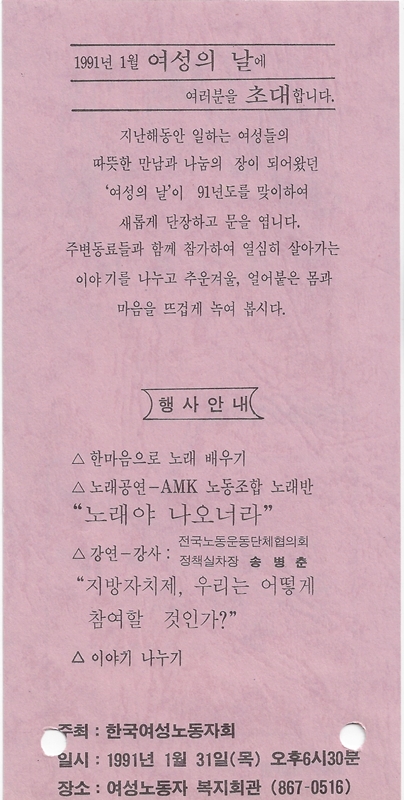 1991년 1월 여성의 날에
여러분을 초대합니다.
지난해동안 일하는 여성들의
따뜻한 만남과 나눔의 장이 되어왔던
‘여성의 날’이 91년도를 맞이하여
새롭게 단장하고 문을 엽니다.
주변동료들과 함께 참가하여 열심히 살아가는
이야기를 나누고 추운겨울, 얼어붙은 몸과
마음을 뜨겁게 녹여 봅시다.
행사안내
△ 한마음으로 노래 배우기
△ 노래공연-AMK 노동조합 노래반
“노래야 나오너라”
△ 강연-강사 : 전국노동운동단체협의회
정책실차장 송병춘
“지방자치제, 우리는 어떻게
참여할 것인가?”
△ 이야기 나누기
주최 : 한국여성노동자회
일시 : 1991년 1월 31일(목) 오후6시30분
장소 : 여성노동자 복지회관 (867-0516)